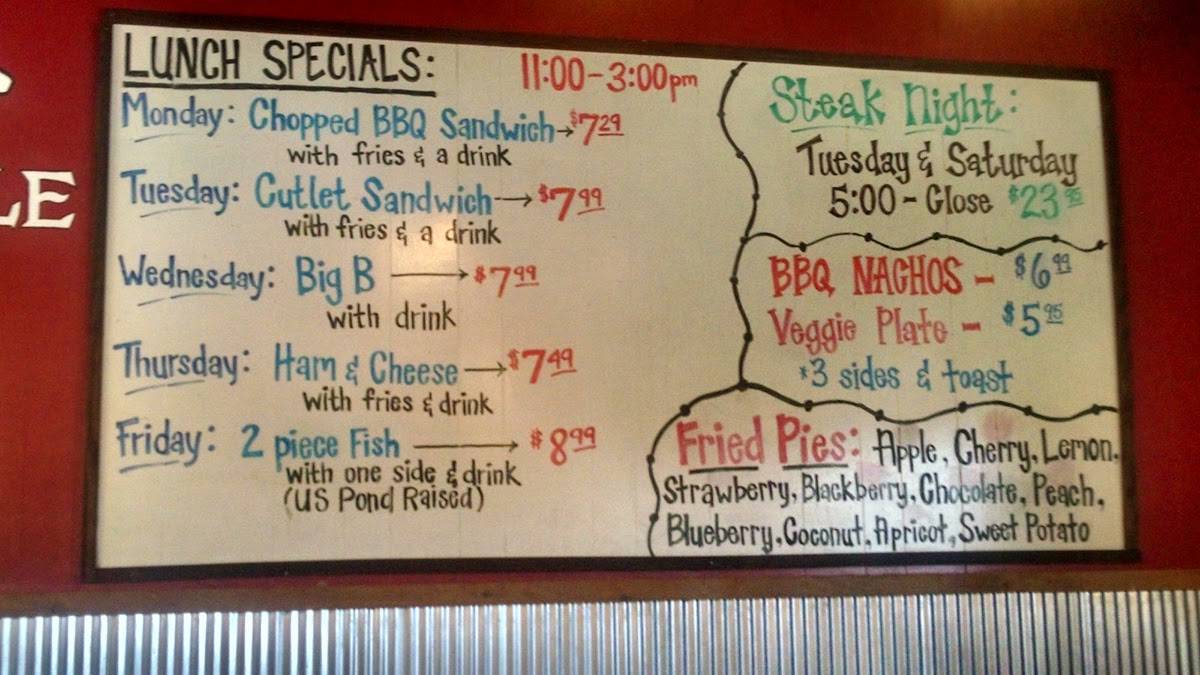 LE
LUNCH SPECIALS: 11:00-3:00pm
Monday: Chopped BBQ Sandwich→$7.29
with fries & a drink
Tuesday: Cutlet Sandwich→$7.99
with fries & a drink
Wednesday: Big B → $7.99
with drink
Thursday: Ham & Cheese→$7.49
with fries & drink
Friday: 2 piece Fish → $8.99
with one side & drink
(US Pond Raised)
Steak Night:
Tuesday & Saturday
5:00 - Close $23.95
BBQ NACHOS - $6.99
Veggie Plate - $5.95
*3 sides & toast
Fried Pies: Apple, Cherry, Lemon,
Strawberry, Blackberry, Chocolate, Peach,
Blueberry, Coconut, Apricot, Sweet Potato